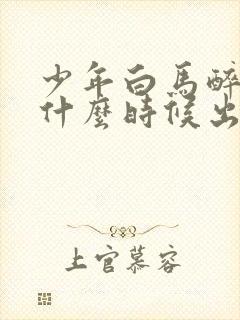 少年白馬醉
什麼時候出
上官慕容